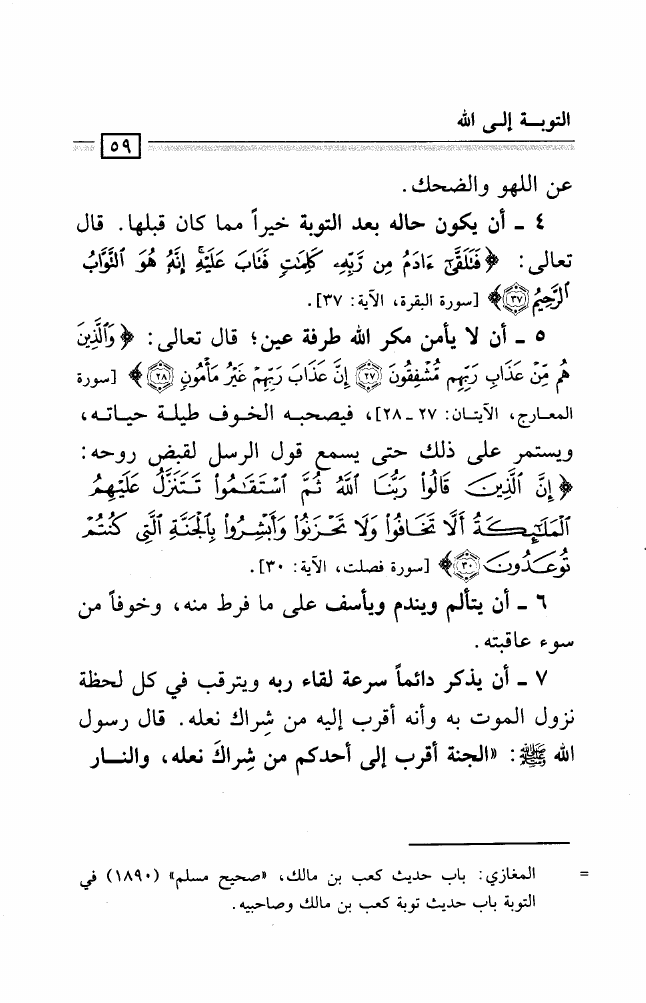 التوبـة إلـى الله
٥٩
عن اللهو والضحك.
٤ ـ أن يكون حاله بعد التوبة خيراً مما كان قبلها. قال
تعالى: ﴿فَتَلَقَّىٰٓ ءَادَمُ مِن رَّبِّهِۦ كَلِمَٰتٍ فَتَابَ عَلَيْهِۚ إِنَّهُۥ هُوَ ٱلتَّوَّابُ
ٱلرَّحِيمُ ٣٧﴾ [سورة البقرة، الآية: ٣٧].
٥ ـ أن لا يأمن مكر الله طرفة عين؛ قال تعالى: ﴿وَٱلَّذِينَ
هُم مِّنْ عَذَابِ رَبِّهِم مُّشْفِقُونَ ٢٧ إِنَّ عَذَابَ رَبِّهِمْ غَيْرُ مَأْمُونٍ ٢٨﴾ [سورة
المعـارج، الآيتـان: ٢٧ ـ ٢٨]، فيصحبـه الخـوف طيلـة حيـاتـه،
ويستمر على ذلك حتى يسمع قول الرسل لقبض روحه:
﴿إِنَّ ٱلَّذِينَ قَالُوا۟ رَبُّنَا ٱللَّهُ ثُمَّ ٱسْتَقَٰمُوا۟ تَتَنَزَّلُ عَلَيْهِمُ
ٱلْمَلَٰٓئِكَةُ أَلَّا تَخَافُوا۟ وَلَا تَحْزَنُوا۟ وَأَبْشِرُوا۟ بِٱلْجَنَّةِ ٱلَّتِى كُنتُمْ
تُوعَدُونَ ٣٠﴾ [سورة فصلت، الآية: ٣٠].
٦ ـ أن يتألم ويندم ويأسف على ما فرط منه، وخوفاً من
سوء عاقبته.
٧ ـ أن يذكر دائماً سرعة لقاء ربه ويترقب في كل لحظة
نزول الموت به وأنه أقرب إليه من شِراك نعله. قال رسول
الله ﷺ: «الجنة أقرب إلى أحدكم من شِراكَ نعله، والنـار
= المغازي: باب حديث كعب بن مالك، «صحيح مسلم» (١٨٩٠) في
التوبة باب حديث توبة كعب بن مالك وصاحبيه.